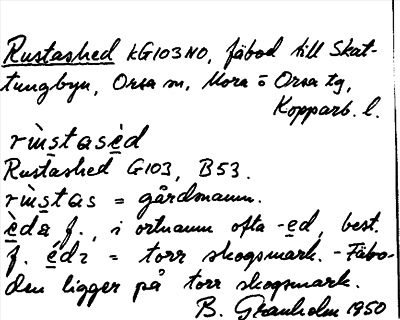 Rustashed KG103NO, fäbod till Skat-
tungbyn, Orsa sn, Mora o Orsa tg,
Kopparb. l.
rùstasèd
Rustashed G103, B53.
rùstas = gårdsnamn.
èda f., i ortnamn ofta -ed, best.
f. édɩ = torr skogsmark. - Fäbo-
den ligger på torr skogsmark.
B. Granholm 1950